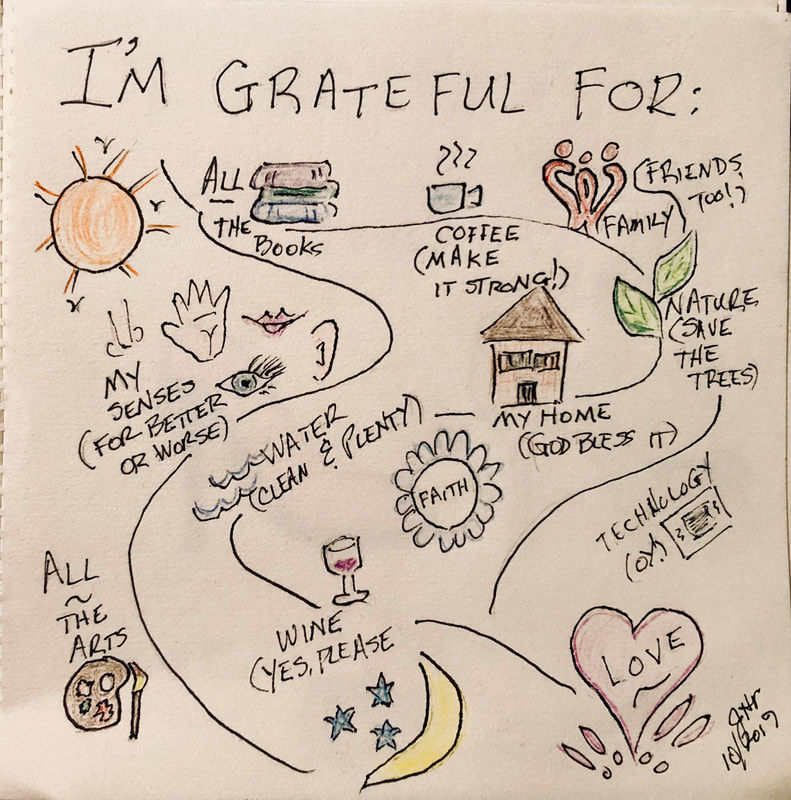 I'M GRATEFUL FOR:
ALL
THE
BOOKS
COFFEE
(MAKE
IT STRONG!)
FAMILY
(FRIENDS
TOO!)
NATURE
(SAVE
THE
TREES)
MY
SENSES
(FOR BETTER
OR WORSE)
MY HOME
(GOD BLESS IT)
WATER
(CLEAN & PLENTY)
FAITH
TECHNOLOGY
(OY!)
ALL
THE
ARTS
WINE
(YES, PLEASE
LOVE
10/2019